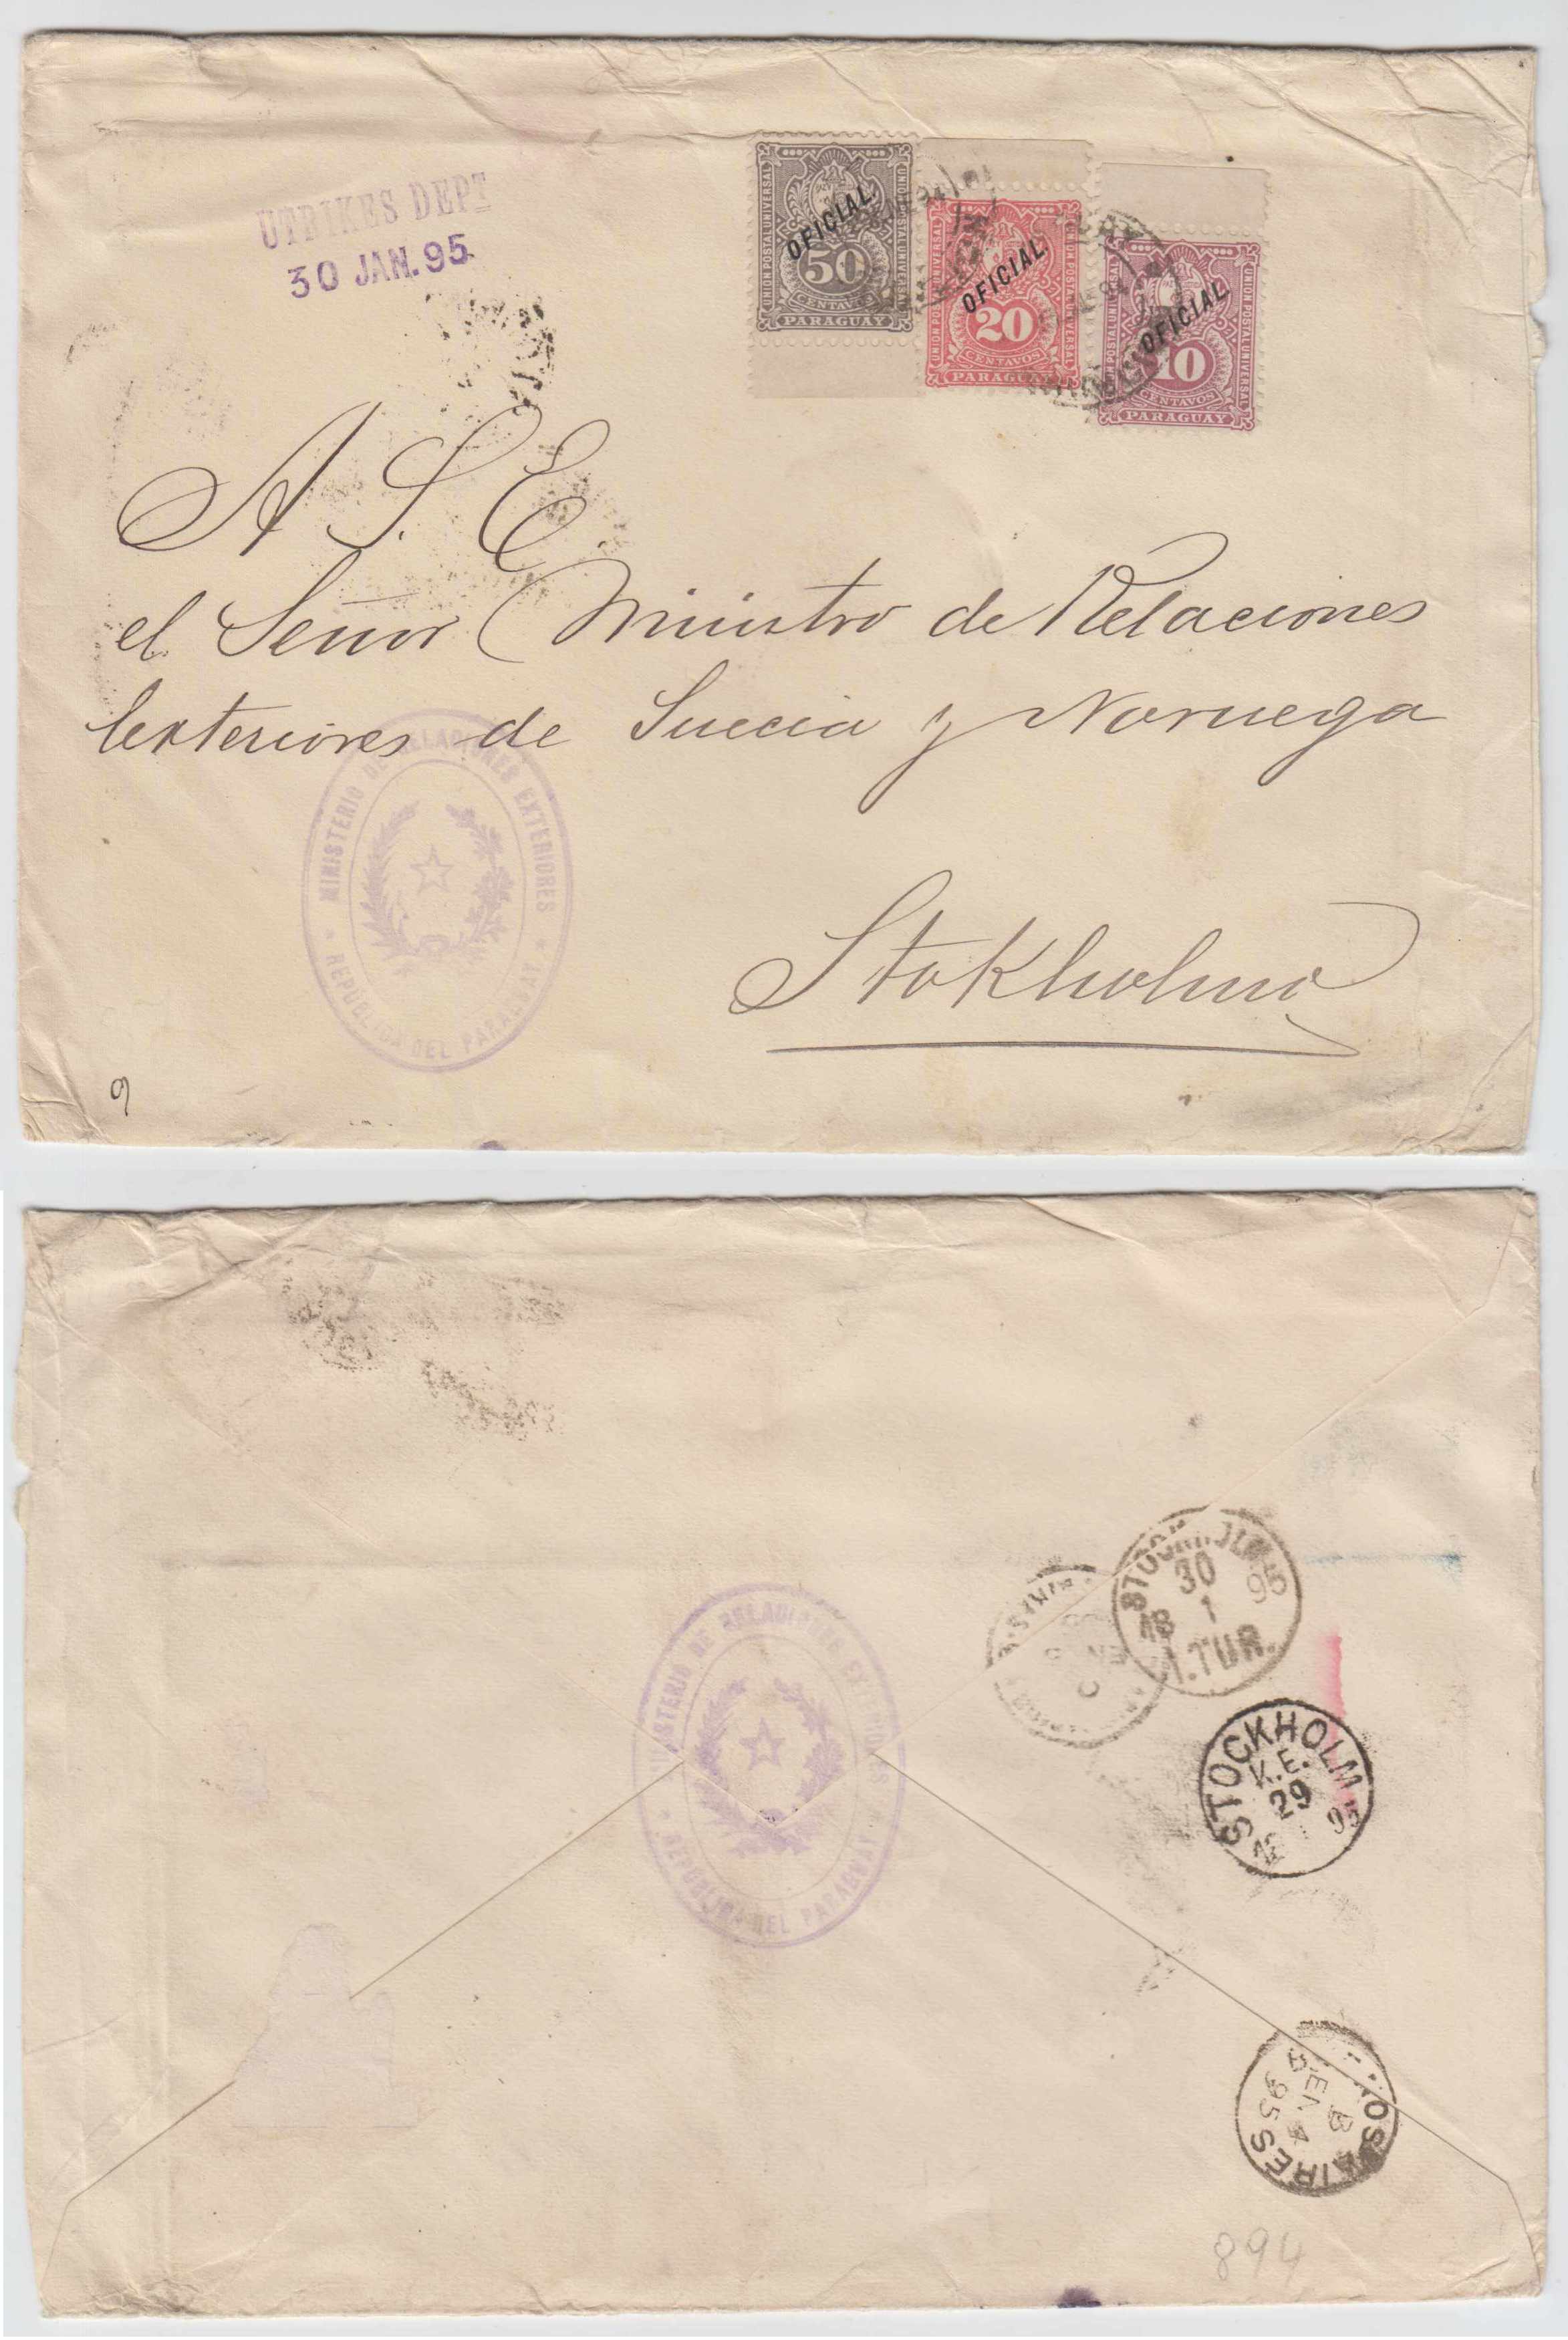 UTRIKES DEPT
30 JAN. 95
UNION POSTAL UNIVERSAL
UNION POSTAL UNIVERSAL
OFICIAL.
50
CENTAVOS
PARAGUAY
UNION POSTAL UNIVERSAL
OFICIAL
20
CENTAVOS
PARAGUAY
UNION POSTAL UNIVERSAL
OFICIAL
10
CENTAVOS
PARAGUAY
A S. E
el Señor Ministro de Relaciones
Exteriores de Suecia y Noruega
Stokholmo
MINISTERIO DE RELACIONES EXTERIORES
REPUBLICA DEL PARAGUAY
9
STOCKHOLM
30
1
18 95
1.TUR.
STOCKHOLM
K.E.
29
18 1 95
MINISTERIO DE RELACIONES EXTERIORES
REPUBLICA DEL PARAGUAY
AIRES
EN
95
894